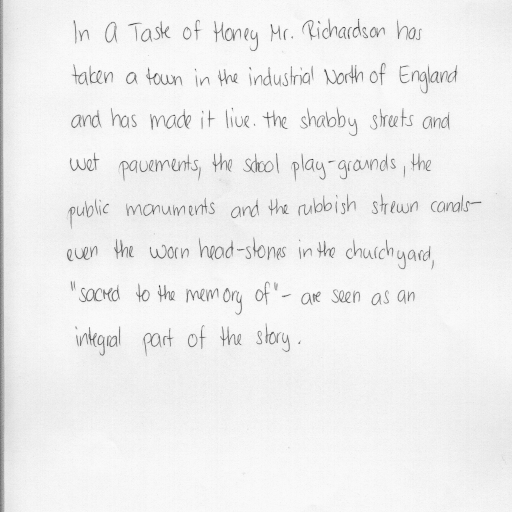 In A Taste of Honey Mr. Richardson has
taken a town in the industrial North of England
and has made it live. The shabby streets and
wet pavements, the school play-grounds, the
public monuments and the rubbish strewn canals-
even the worn head-stones in the churchyard,
"sacred to the memory of"- are seen as an
integral part of the story.